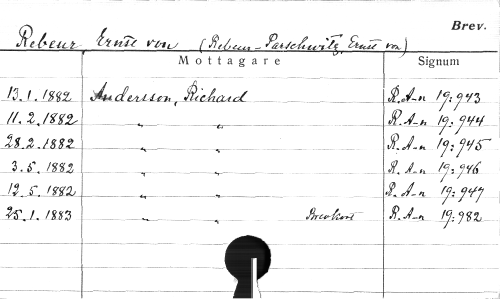 Brev.
Rebeur, Ernst von (Rebeur-Paschwitz, Ernst von)
Mottagare Signum
13.1.1882 Andersson, Richard R.A-n 19:943
11.2.1882 " " R.A-n 19:944
28.2.1882 " " R.A-n 19:945
3.5.1882 " " R.A-n 19:946
12.5.1882 " " R.A-n 19:947
25.1.1883 " " Brevkort R.A-n 19:982